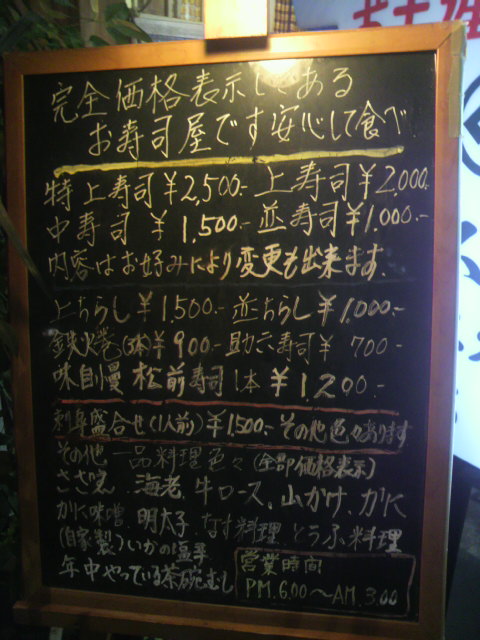 完全価格表示してある
お寿司屋です安心して食べ
特上寿司¥2,500- 上寿司¥2,000
中寿司 ¥1,500- 並寿司¥1,000.-
内容はお好みにより変更も出来ます.
上ちらし¥1,500- 並ちらし¥1,000-
鉄火巻 ¥900- 助六寿司¥ 700-
味自慢 松前寿司1本 ¥1200-
刺身盛合せ(1人前)¥1,500- その他色々あります
その他 一品料理色々(全部価格表示)
さざえ、海老、牛ロース、山かけ、かに
かに味噌、明太子、なす料理、とうふ料理
(自家製)いかの塩辛
年中やっている茶碗むし
営業時間
PM.6.00〜AM.3.00